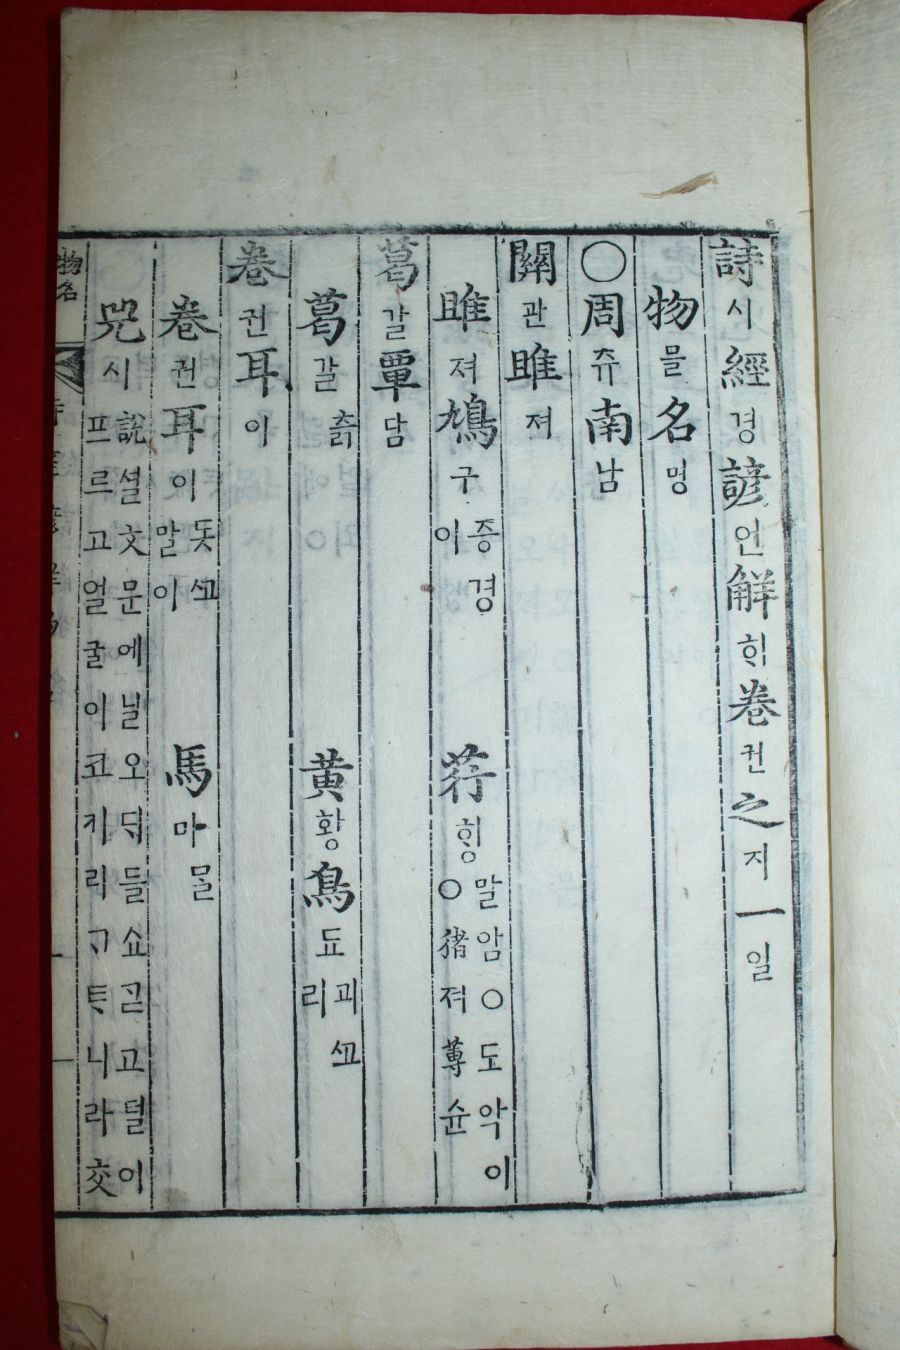 詩시經경諺언解ᄒᆡ卷권之지一일
物믈名명
○周쥬南남
關관雎져
雎져鳩구 증경이 荇ᄒᆡᆼ 말암○도악이○猪져蓴슌
葛갈覃담
葛갈 츩 黃황鳥됴 괴ᄭᅩ리
卷권耳이
卷권耳이 돗ᄭᅩ말이 馬마 ᄆᆞᆯ
兕시 說셜文문에닐오ᄃᆡ들쇼ᄀᆞᆮ고털이프르고얼굴이코키리ᄀᆞᄐᆞ니라交
物名